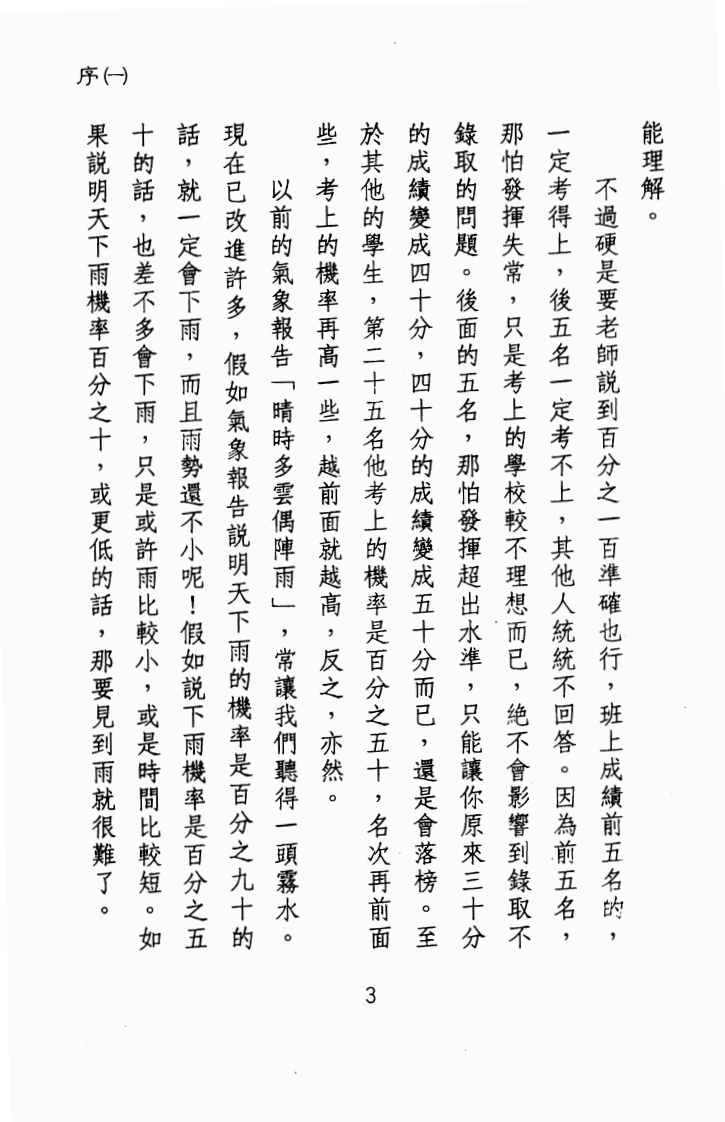 序㈠
能理解。
不過硬是要老師説到百分之一百準確也行，班上成績前五名的，
一定考得上，後五名一定考不上，其他人統統不回答。因為前五名，
那怕發揮失常，只是考上的學校較不理想而已，絶不會影響到錄取不
錄取的問題。後面的五名，那怕發揮超出水準，只能讓你原來三十分
的成績變成四十分，四十分的成績變成五十分而已，還是會落榜。至
於其他的學生，第二十五名他考上的機率是百分之五十，名次再前面
些，考上的機率再高一些，越前面就越高，反之，亦然。
以前的氣象報告「晴時多雲偶陣雨」，常讓我們聽得一頭霧水。
現在已改進許多，假如氣象報告説明天下雨的機率是百分之九十的
話，就一定會下雨，而且雨勢還不小呢！假如説下雨機率是百分之五
十的話，也差不多會下雨，只是或許雨比較小，或是時間比較短。如
果説明天下雨機率百分之十，或更低的話，那要見到雨就很難了。
3